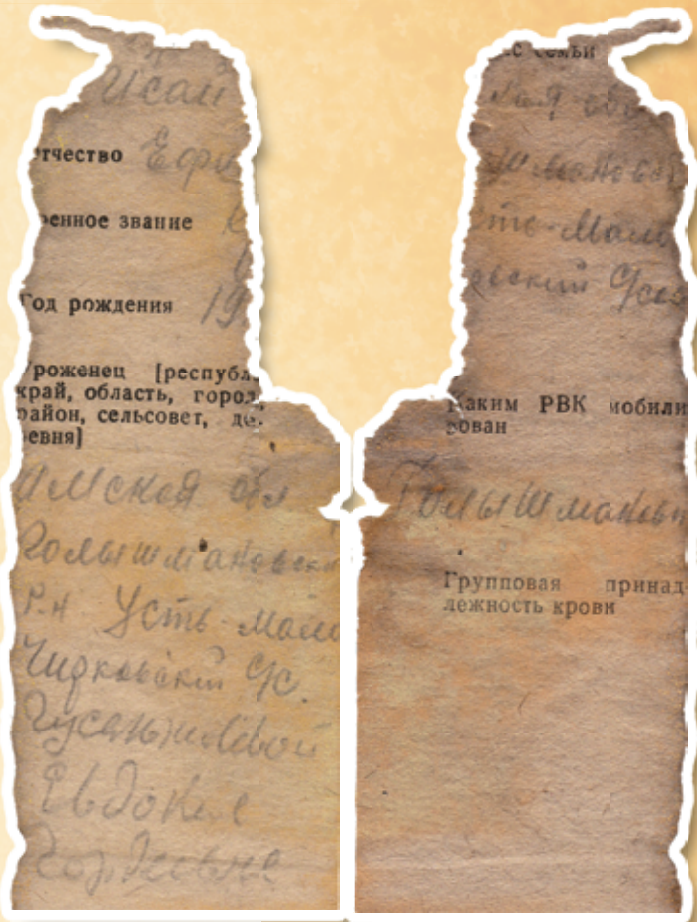 Исай
тчество Ефи
енное звание К
Год рождения 19
Уроженец [республ.
край, область, город,
район, сельсовет, де-
ревня]
Омской обл
Голышмановски
Р-н Усть-мал
Чирковский с/с.
Евдокие
Гордеевне
с семьи
кая об
шмановск
сть-Мал
овский с/сов
Каким РВК мобили
зован
Голышманов
Групповая принад-
лежность крови